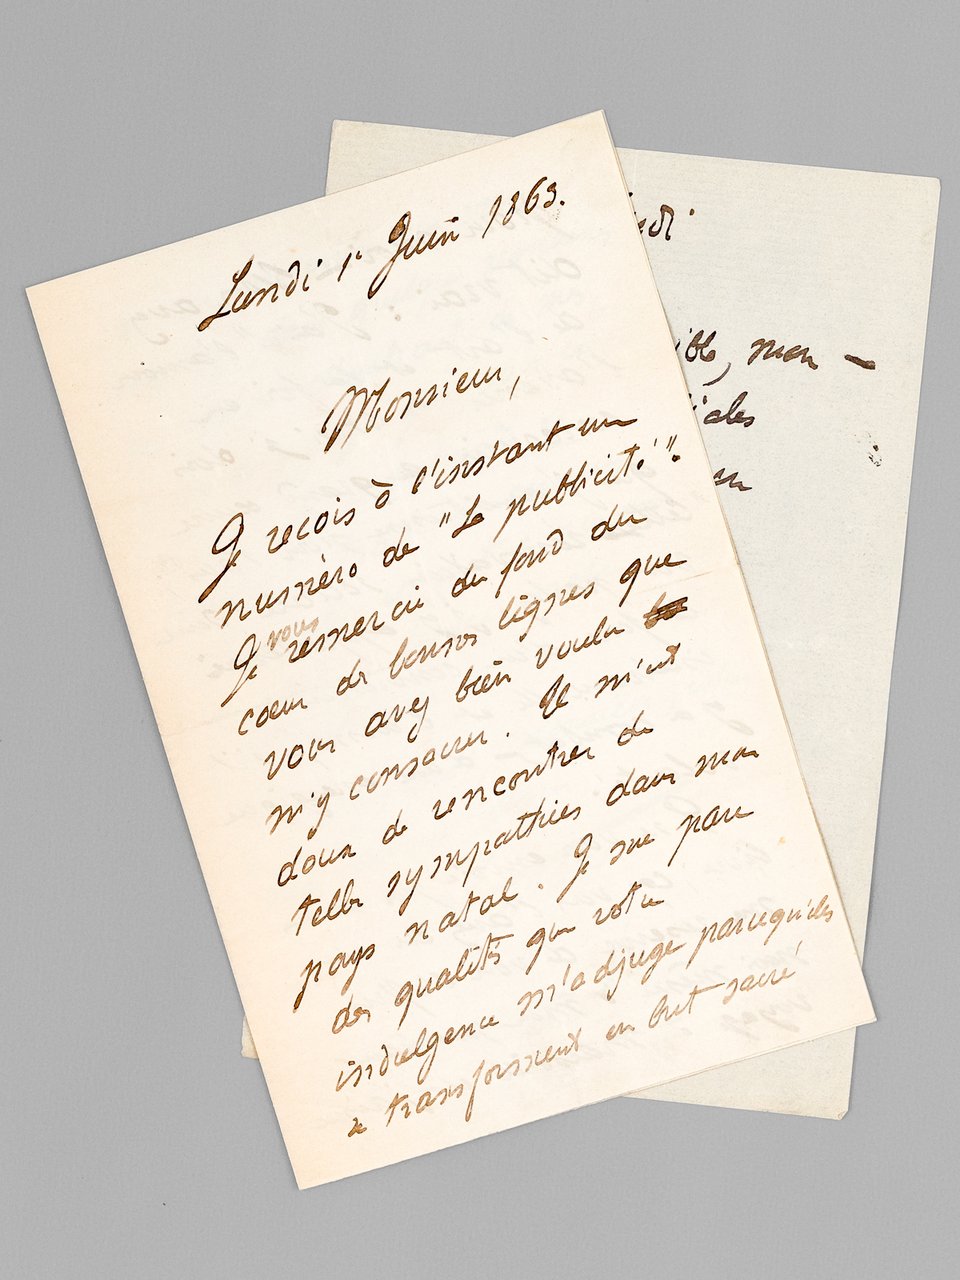 Lundi 1r Juin 1863.
Monsieur,
Je reçois à l'instant un
numéro de "La publicité".
Je vous remercie du fond du
coeur des bonnes lignes que
vous avez bien voulu
m'y consacrer. Il m'est
doux de rencontrer de
telles sympathies dans mon
pays natal. Je me pare
des qualités que votre
indulgence m'adjuge parcequ'elles
se transforment en but sacré
mon –